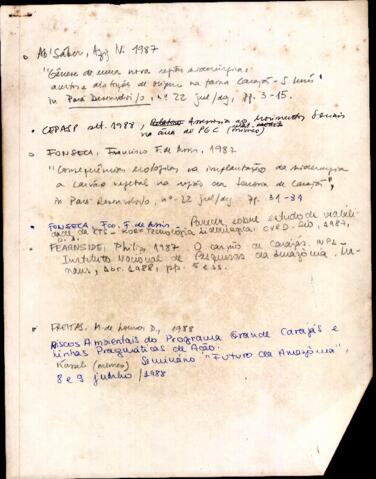 Ab'Sáber, Aziz N. 1987
"Gênese de uma nova região siderúrgica:
acertos e distorções de origem na faixa Carajás - S. Luís"
in Pará Desenvolvido, nº 22 jul/dez, pp. 3-15.
CEPASP set. 1988, Assessoria aos Movimentos Sociais
na área do PGC (mimeo)
FONSECA, Francisco F. de Assis, 1987
"Consequências ecológicas na implantação da siderurgia
a carvão vegetal na região da Serra de Carajás",
in Pará Desenvolvido, nº 22 jul/dez, pp. 31-31
FONSECA, Fco. F. de Assis Parecer sobre estudo de viabili-
dade da Tecnologia Siderúrgica. CVRD. 1987,
FEARNSIDE, Philip, 1987 O carvão de Carajás. INPA-
Instituto Nacional de Pesquisas da Amazônia. Ma-
naus, 1988, pp.
FREITAS, M. de Lourdes D., 1988
Riscos Ambientais do Programa Grande Carajás e
Linhas Pragmáticas de Ação.
(mimeo) Seminário "Futuro da Amazônia",
8 e 9 junho/1988